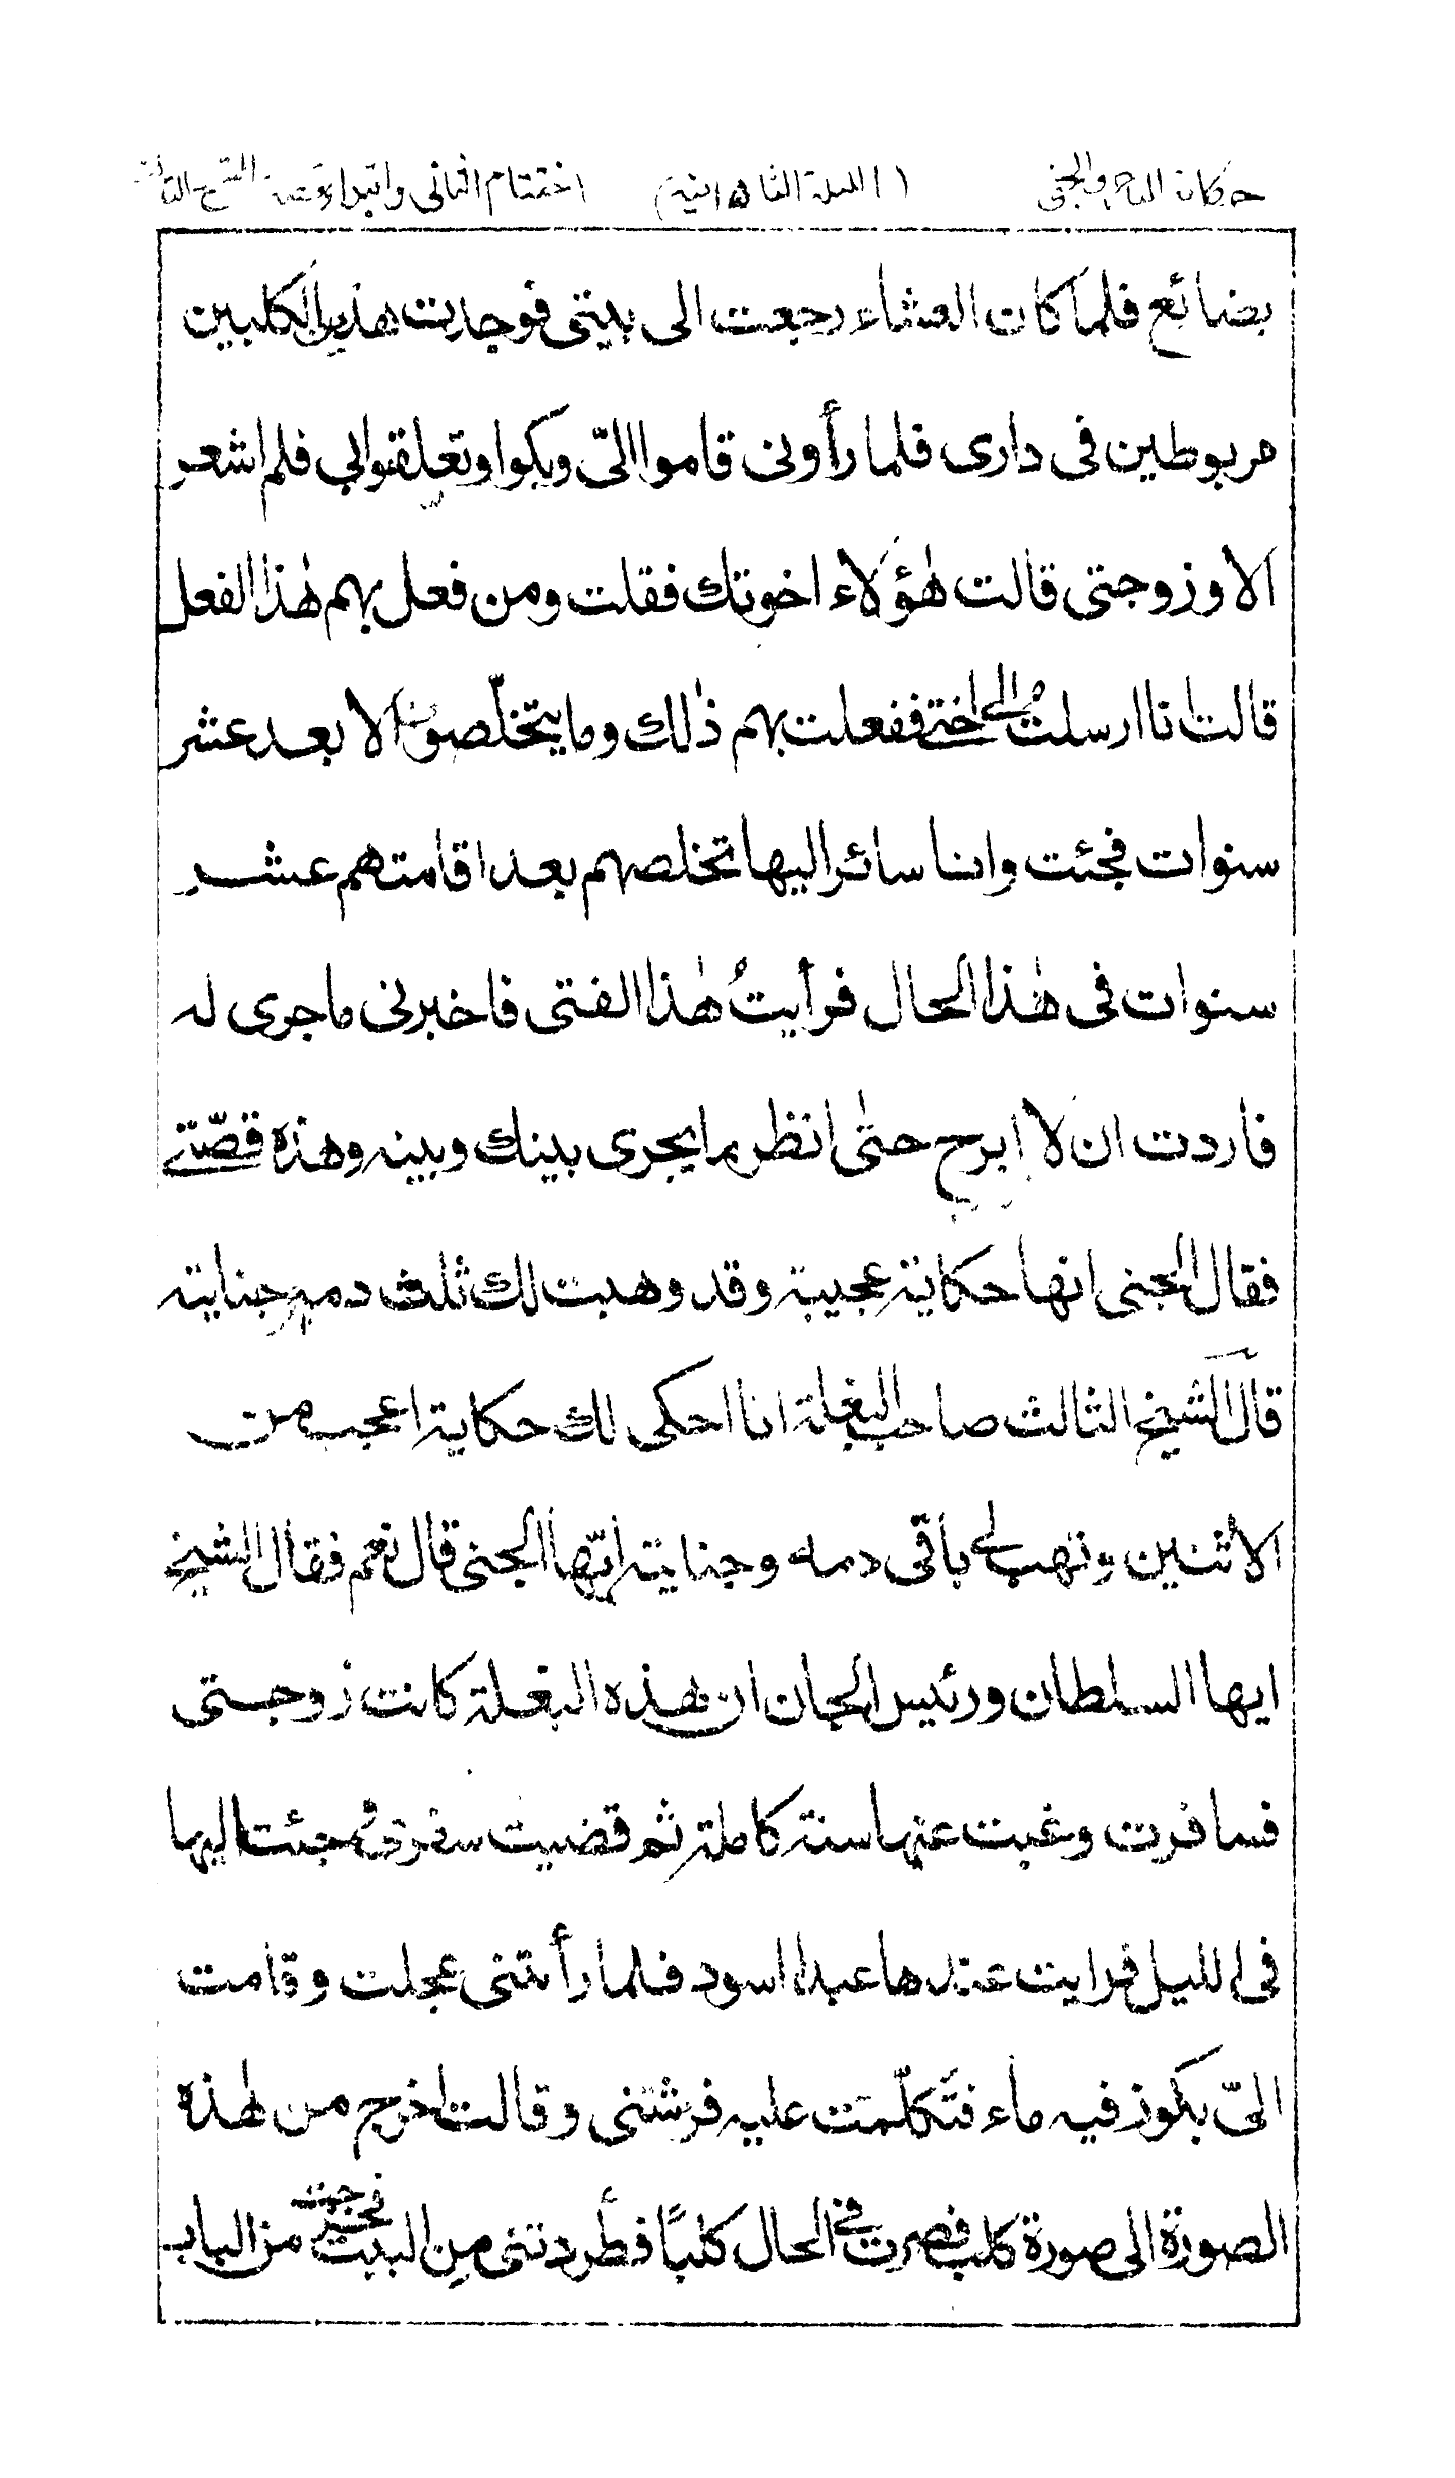 حكاية التاجر والجنى ( الليلة الثانية ) اختتام الثانى وابتداء قصة الشيخ
بضائع فلما كان العشاء رجعت الى بيتى فوجدت هذين الكلبين
مربوطين فى دارى فلما رأونى قاموا الىّ وبكوا وتعلقوا بى فلم اشعر
الا وزوجتى قالت هٰؤلاء اخوتك فقلت ومن فعل بهم هٰذا الفعل
قالت انا ارسلتُ الى اختى ففعلت بهم ذٰلك وما يتخلّصون الا بعد عشر
سنوات فجئت وانا سائر اليها تخلصهم بعد اقامتهم عشر
سنوات فى هٰذا الحال فرأيتُ هٰذا الفتى فاخبرنى ما جرى له
فاردت ان لا ابرح حتٰى انظر ما يجرى بينك وبينه وهذه قصّتى
فقال الجنى انها حكاية عجيبة وقد وهبت لك ثلث دمه وجنايته
قال الشيخ الثالث صاحب البغلة انا احكى لك حكاية اعجب من
الاثنين وتهب لى باقى دمه وجنايته ايّها الجنى قال نعم فقال الشيخ
ايها السلطان ورئيس الجان ان هذه البغلة كانت زوجتى
فسافرت وغبت عنها سنة كاملة ثم قضيت سفرى وجئت اليها
فى الليل فرايت عندها عبدا اسود فلما رأتنى عجلت وقامت
الىّ بكوز فيه ماء فتكلّمت عليه فرشتنى وقالت اخرج من هٰذه
الصورة الى صورة كلب فصرت فى الحال كلبًا فطردتنى من البيت فخرجت من الباب